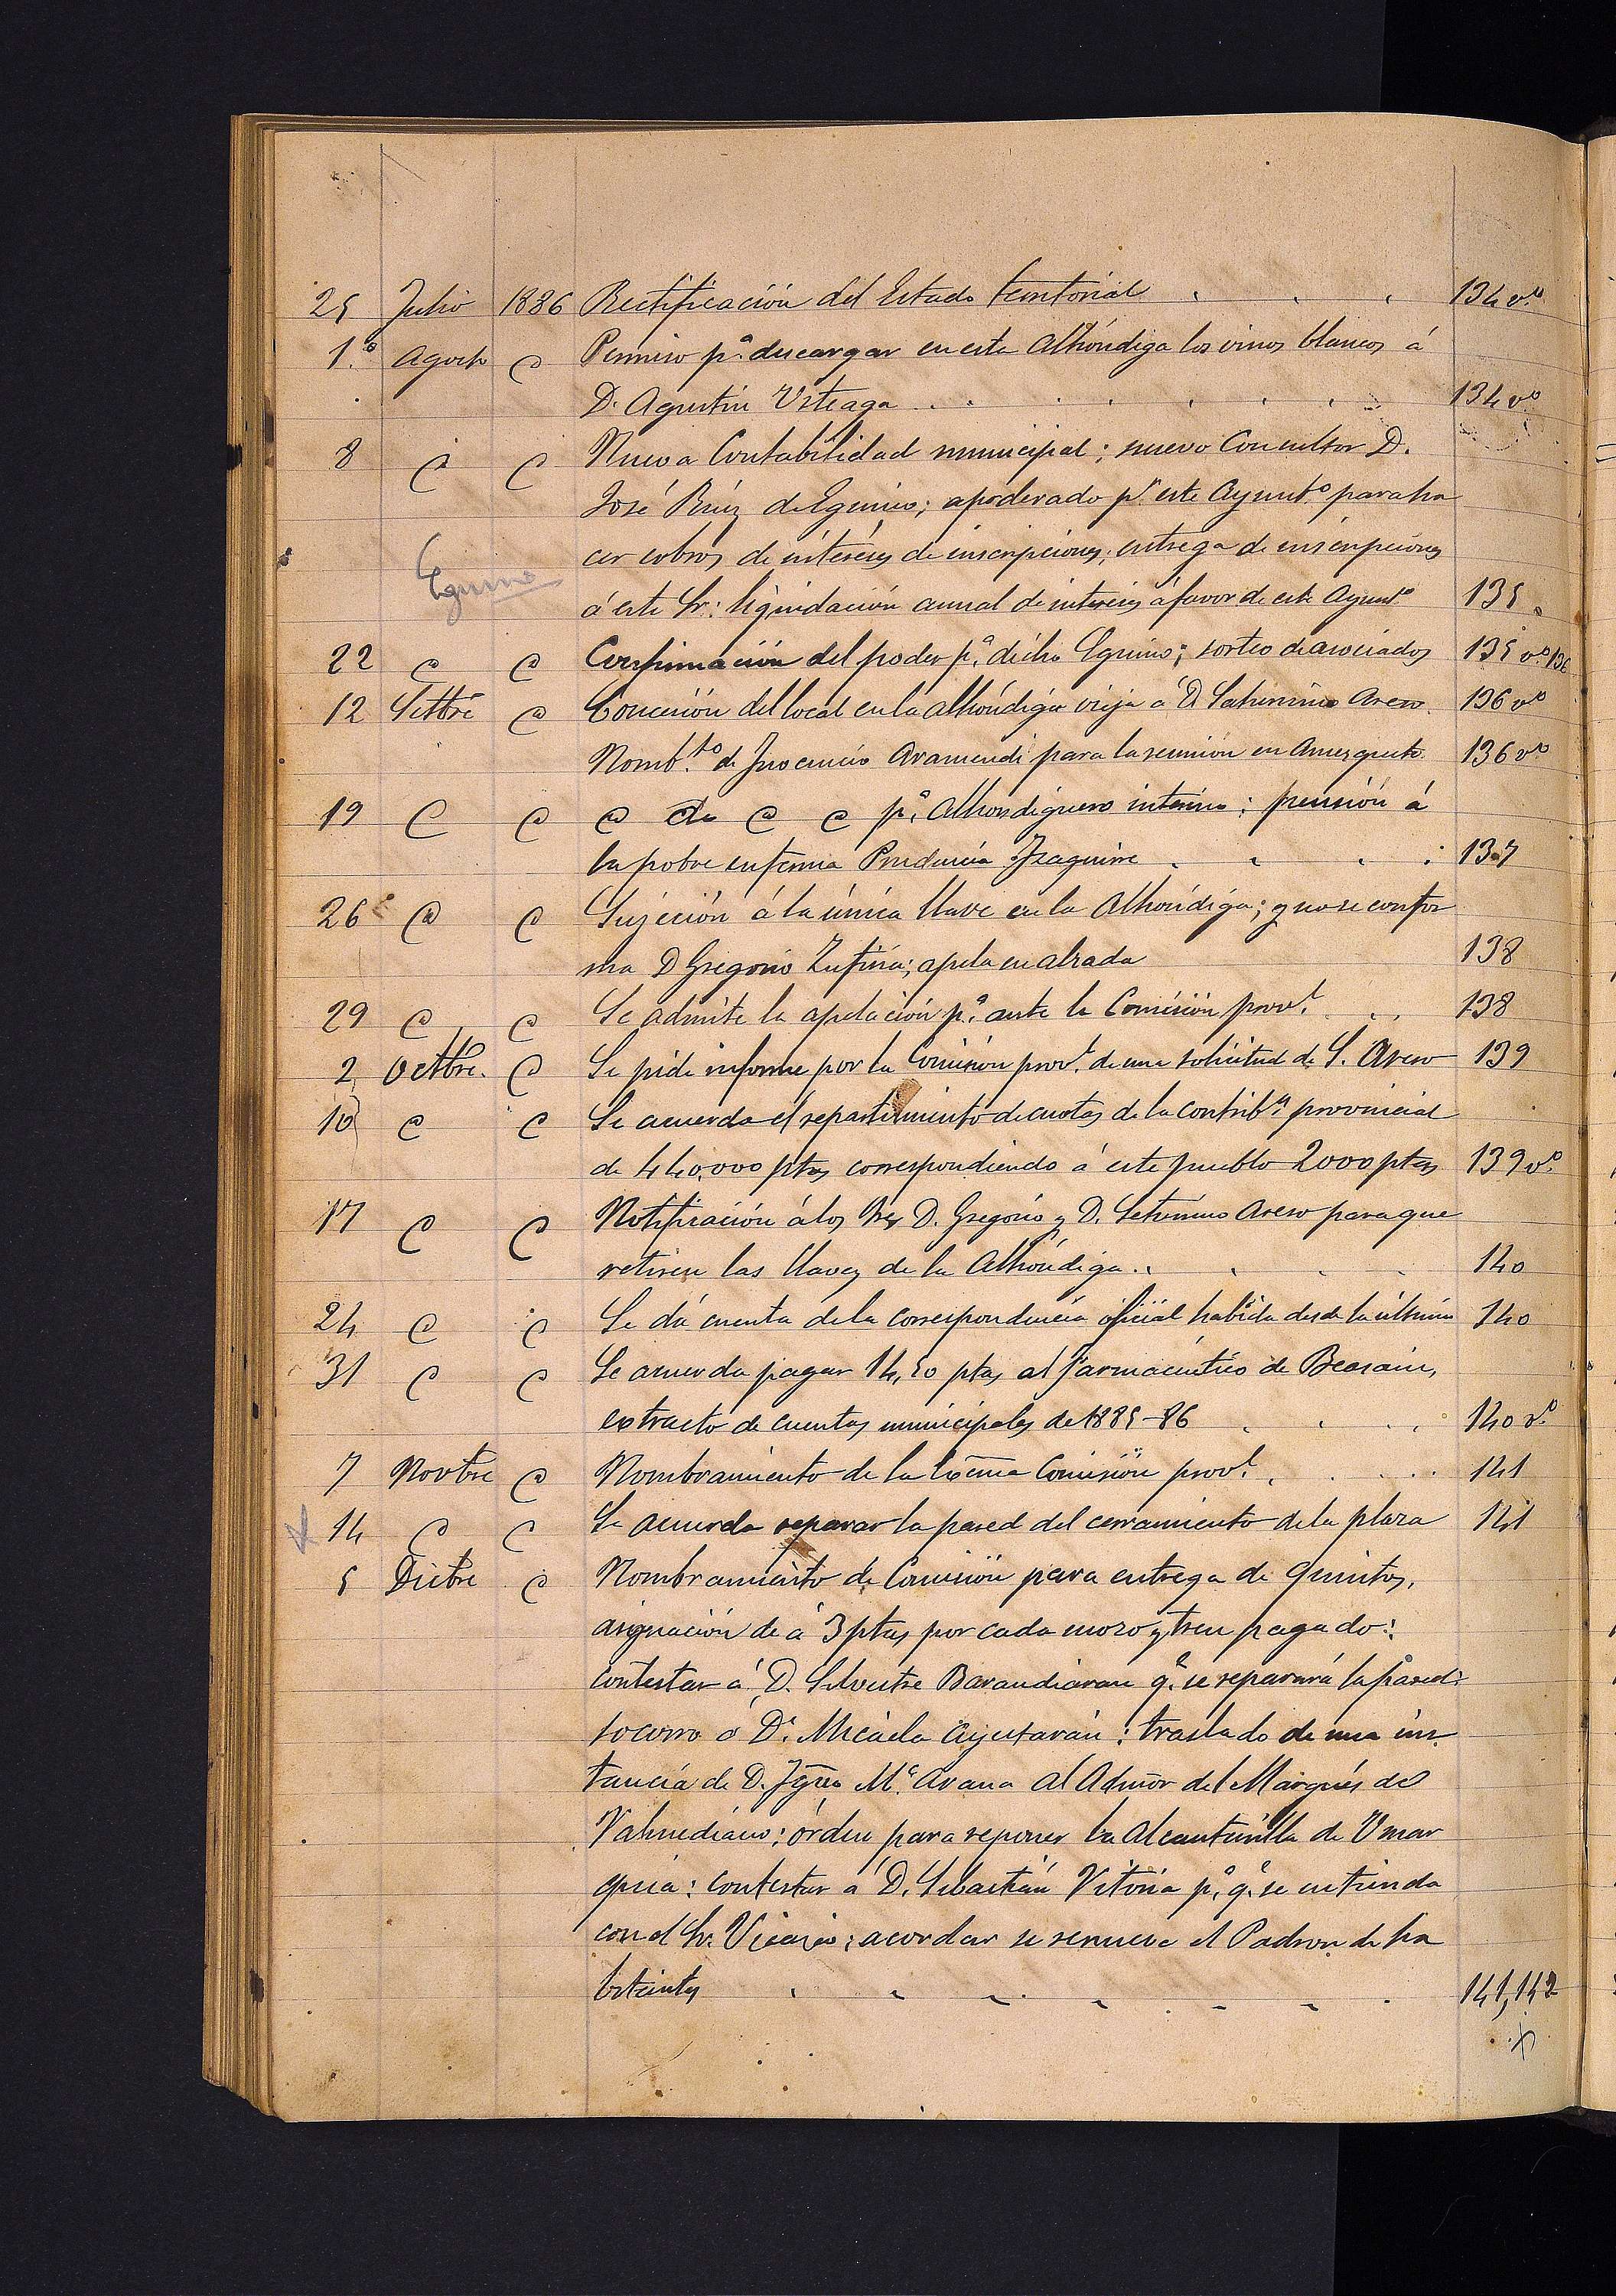 25 Julio 1886 Rectificación del Estado territorial . . . 134 vº
1.º Agosto @ Permiso pª descargar en esta Alhóndiga los vinos blancos á
D. Agustin Usteaga . . . . . . . 134 vº
8 @ @ Nueva Contabilidad municipal; nuevo Consultor D.
José Ruiz de Eguino; apoderado pr este Ayuntº para ha
cer cobros de intereses de inscripciones; entrega de inscripciones
Eguino
á este Sr: liquidación anual de intereses á favor de este Ayuntº 135
22 @ @ Confirmación del poder pª dicho Eguino; sorteo de asociados 135 vº 136
12 Settbre @ Concesión del local en la alhóndiga vieja á D Saturnino Areso 136 vº
Nomb.to de Inocencio Aramendi para la reunión en Amezqueta 136 vº
19 @ @ @ de @ @ pª Alhondiguero interino: pensión á
la pobre enferma Prudencia Izaguirre . . . : 137
26 @ @ Sujeción á la única llave en la Alhóndiga; y no se confor
ma D Gregorio Zufiria; apela en alzada 138
29 @ @ Se admite la apelación pª ante la Comisión provl . . 138
2 Octtbre. @ Se pide informe por la Comisión provl de una solicitud de S. Areso 139
10 @ @ Se acuerda el repartimiento de cuotas de la contribón provincial
de 440,000 ptas correspondiendo á este pueblo 2000 ptas 139 vº
17 @ @ Notificación á los Sres D. Gregorio y D. Saturnino Areso para que
retiren las llaves de la Alhóndiga . . . . 140
24 @ @ Se dá cuenta de la correspondencia oficial habida desde la última 140
31 @ @ Se acuerda pagar 14,50 ptas al farmacéutico de Beasain,
extracto de cuentas municipales de 1885-86 . . . 140 vº
7 Novbre @ Nombramiento de la Excma Comisión provl . . . . 141
14 @ @ Se acuerda reparar la pared del cerramiento de la plaza 141
5 Dicbre @ Nombramiento de Comisión para entrega de quintos,
asignación de á 3 ptas por cada mozo y tren pagado:
contestar á D. Silvestre Barandiaran qe se reparará la pared:
socorro á Dª Micaela : traslado de una ins
tancia de D. Igno Mª Arana al Admor del Marqués de
Valmediano: órden para reponer la Alcantarilla de Umar
: contestar á D. Sebastián Vitoria pª qe se entienda
con el Sr. Vicario: acordar se renueve el Padron de ha
bitantes . . . . . . . 141, 142